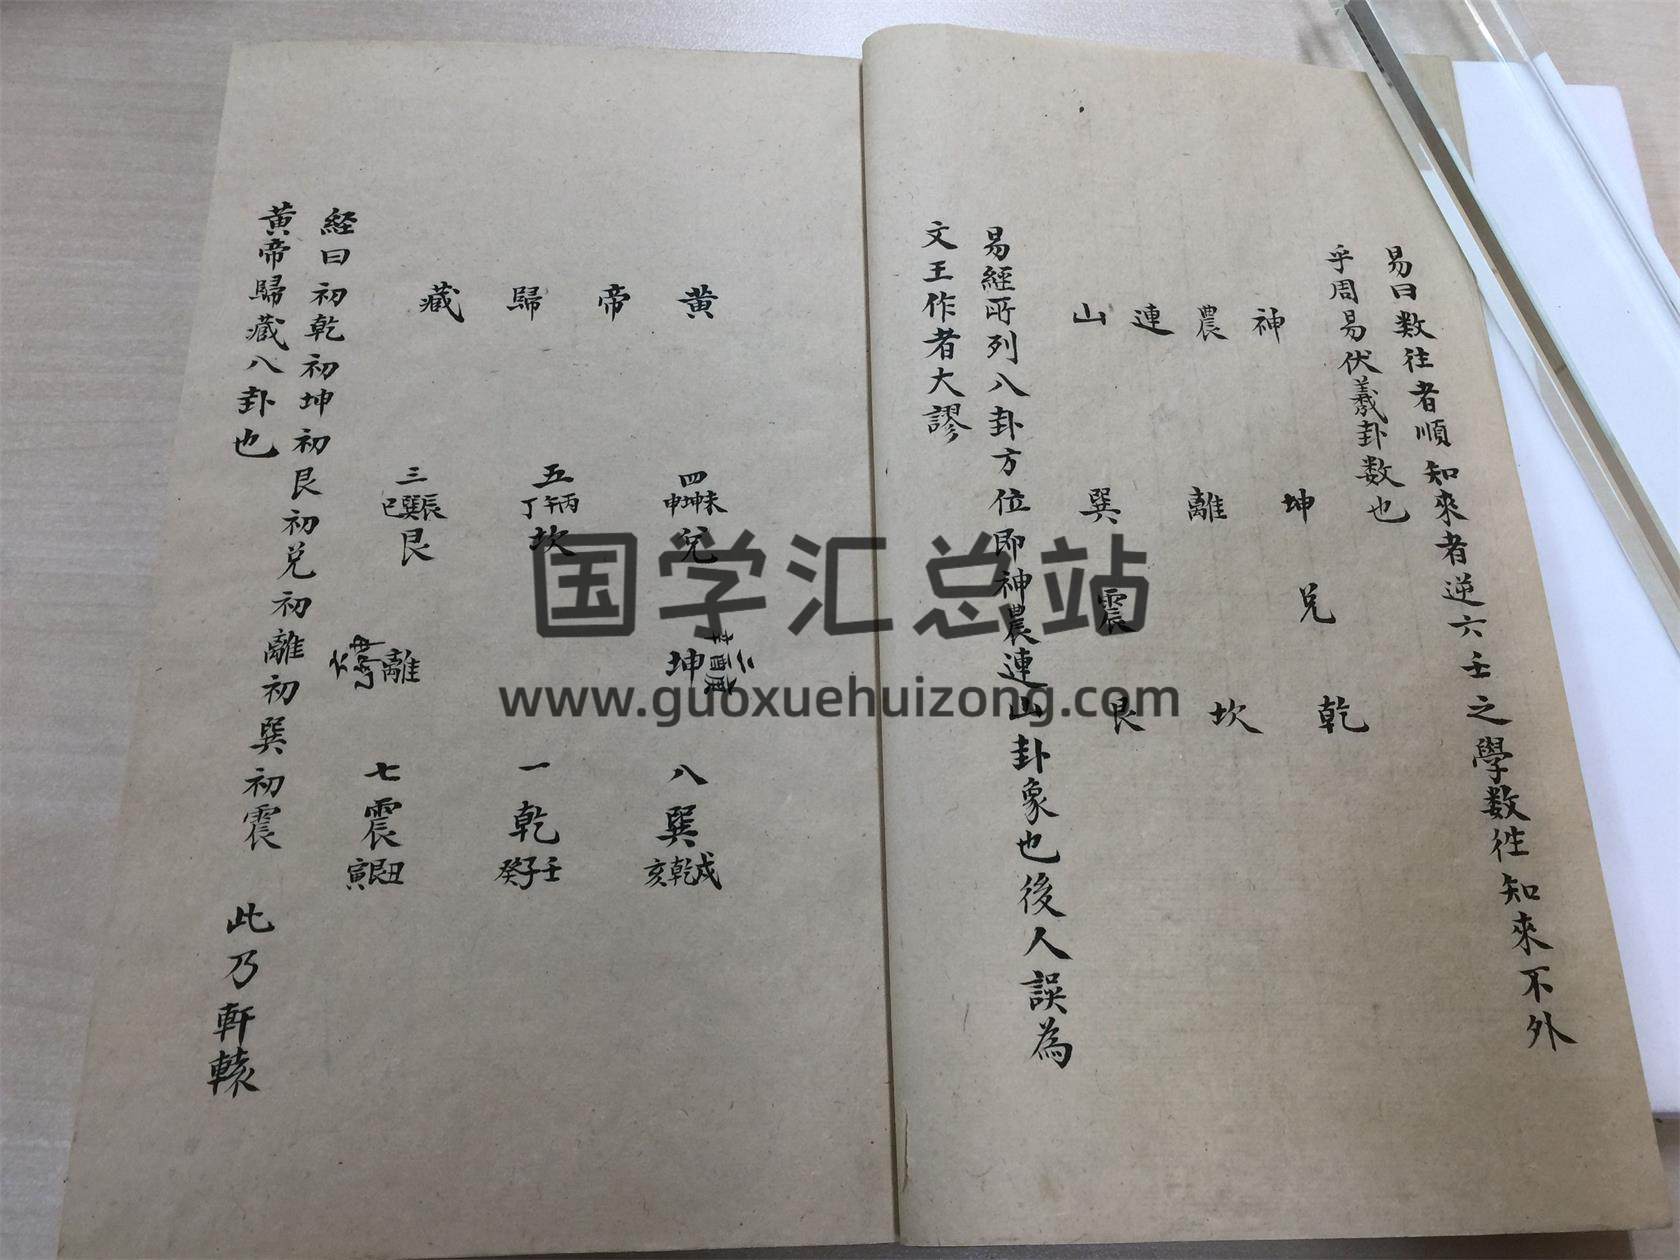 易曰数往者順知來者逆六壬之學数往知來不外
乎周易伏羲卦数也
神農連山
坤離巽
兌震
乾坎艮
易經所列八卦方位即神農連山卦象也後人誤為
文王作者大謬
黃帝歸藏
四 未坤申 兌
五 丙午丁 坎
三 辰巽巳 艮
二 庚酉辛 坤
離
八 巽 戌乾亥
一 乾 壬子癸
七 震 丑艮寅
経曰初乾初坤初艮初兌初離初巽初震 此乃軒轅
黃帝歸藏八卦也
国学汇总站
www.guoxuehuizong.com